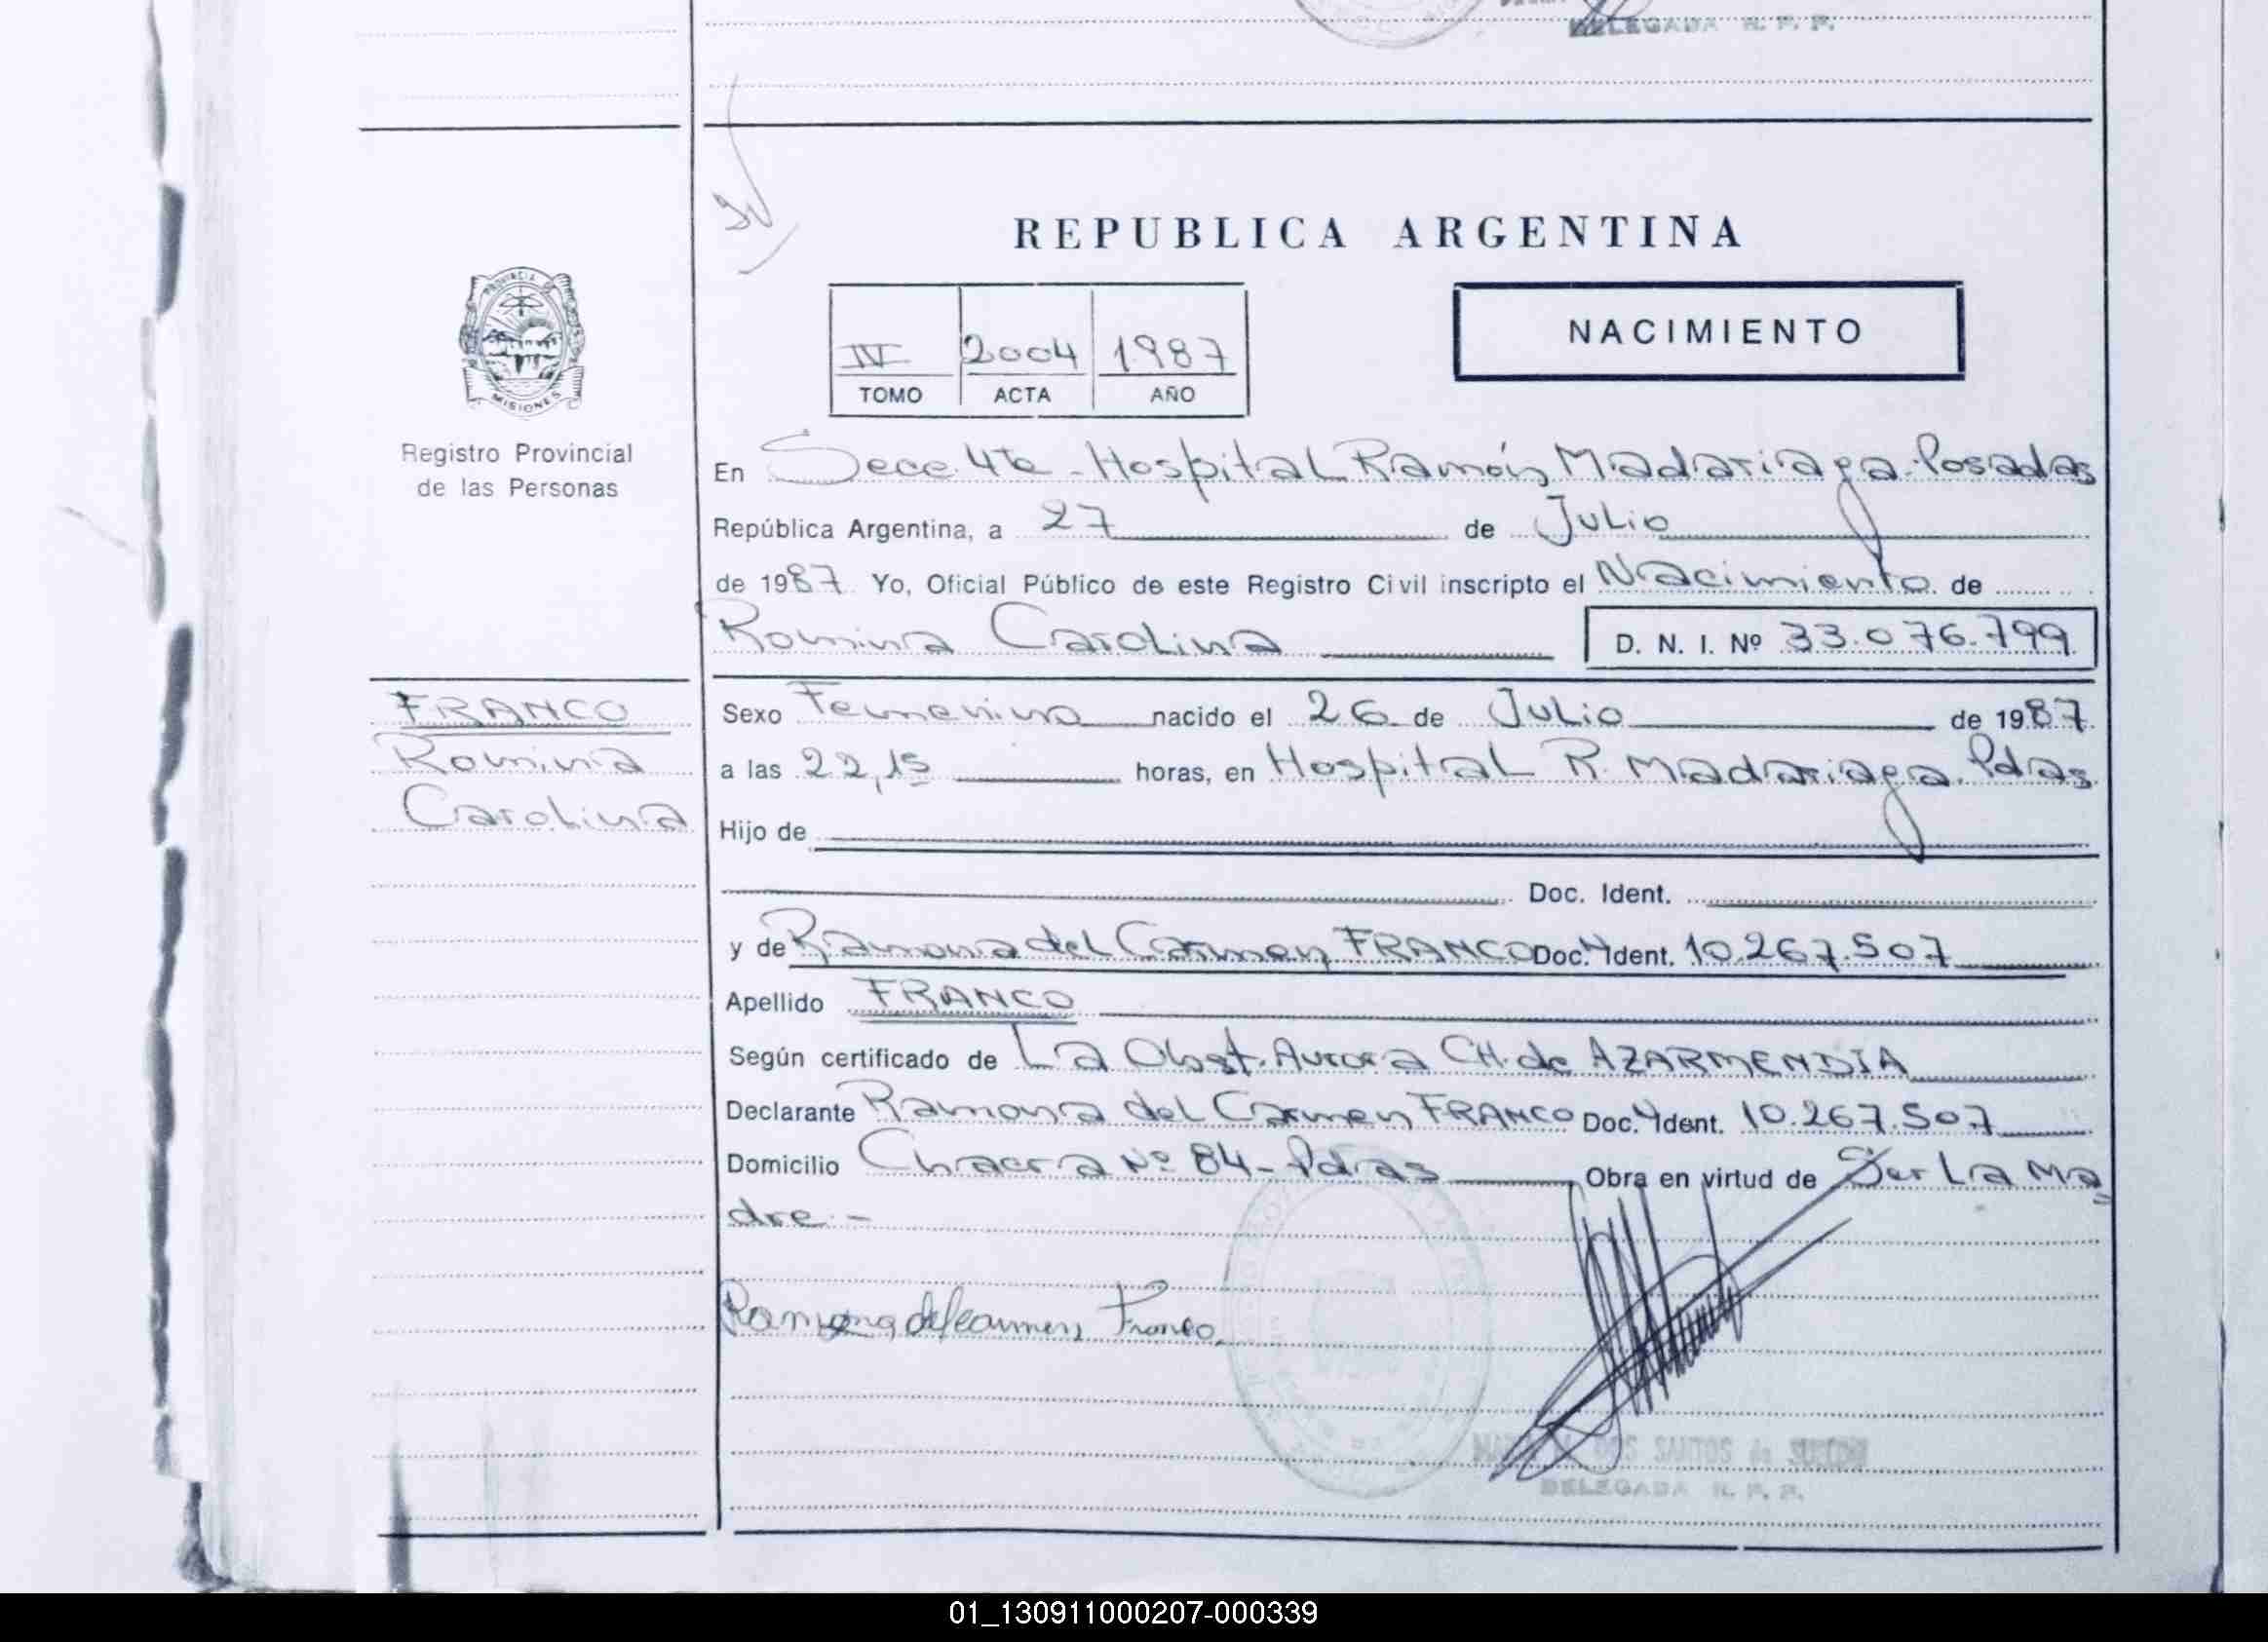 DELEGADA R. P. P.
REPUBLICA ARGENTINA
PROVINCIA DE
MISIONES
Registro Provincial
de las Personas
IV 2004 1987
TOMO ACTA AÑO
NACIMIENTO
En Secc. 4ta - Hospital Ramón Madariaga. Posadas
República Argentina, a 27 de Julio
de 1987. Yo, Oficial Público de este Registro Civil inscripto el Nacimiento de
Romina Carolina D. N. I. Nº 33.076.799
FRANCO
Romina
Carolina
Sexo Femenino nacido el 26 de Julio de 1987.
a las 22,15 horas, en Hospital R. Madariaga. Pdas.
Hijo de
Doc. Ident.
y de Ramona del Carmen FRANCO Doc. Ident. 10.267.507
Apellido FRANCO
Según certificado de La Obst. Aurora CH. de AZARMENDIA
Declarante Ramona del Carmen FRANCO Doc. Ident. 10.267.507
Domicilio Chacra Nº 84 - Pdas Obra en virtud de Ser La Ma
dre. -
Ramona del carmen Franco
DOS SANTOS de
DELEGADA R. P. P.
01_130911000207-000339